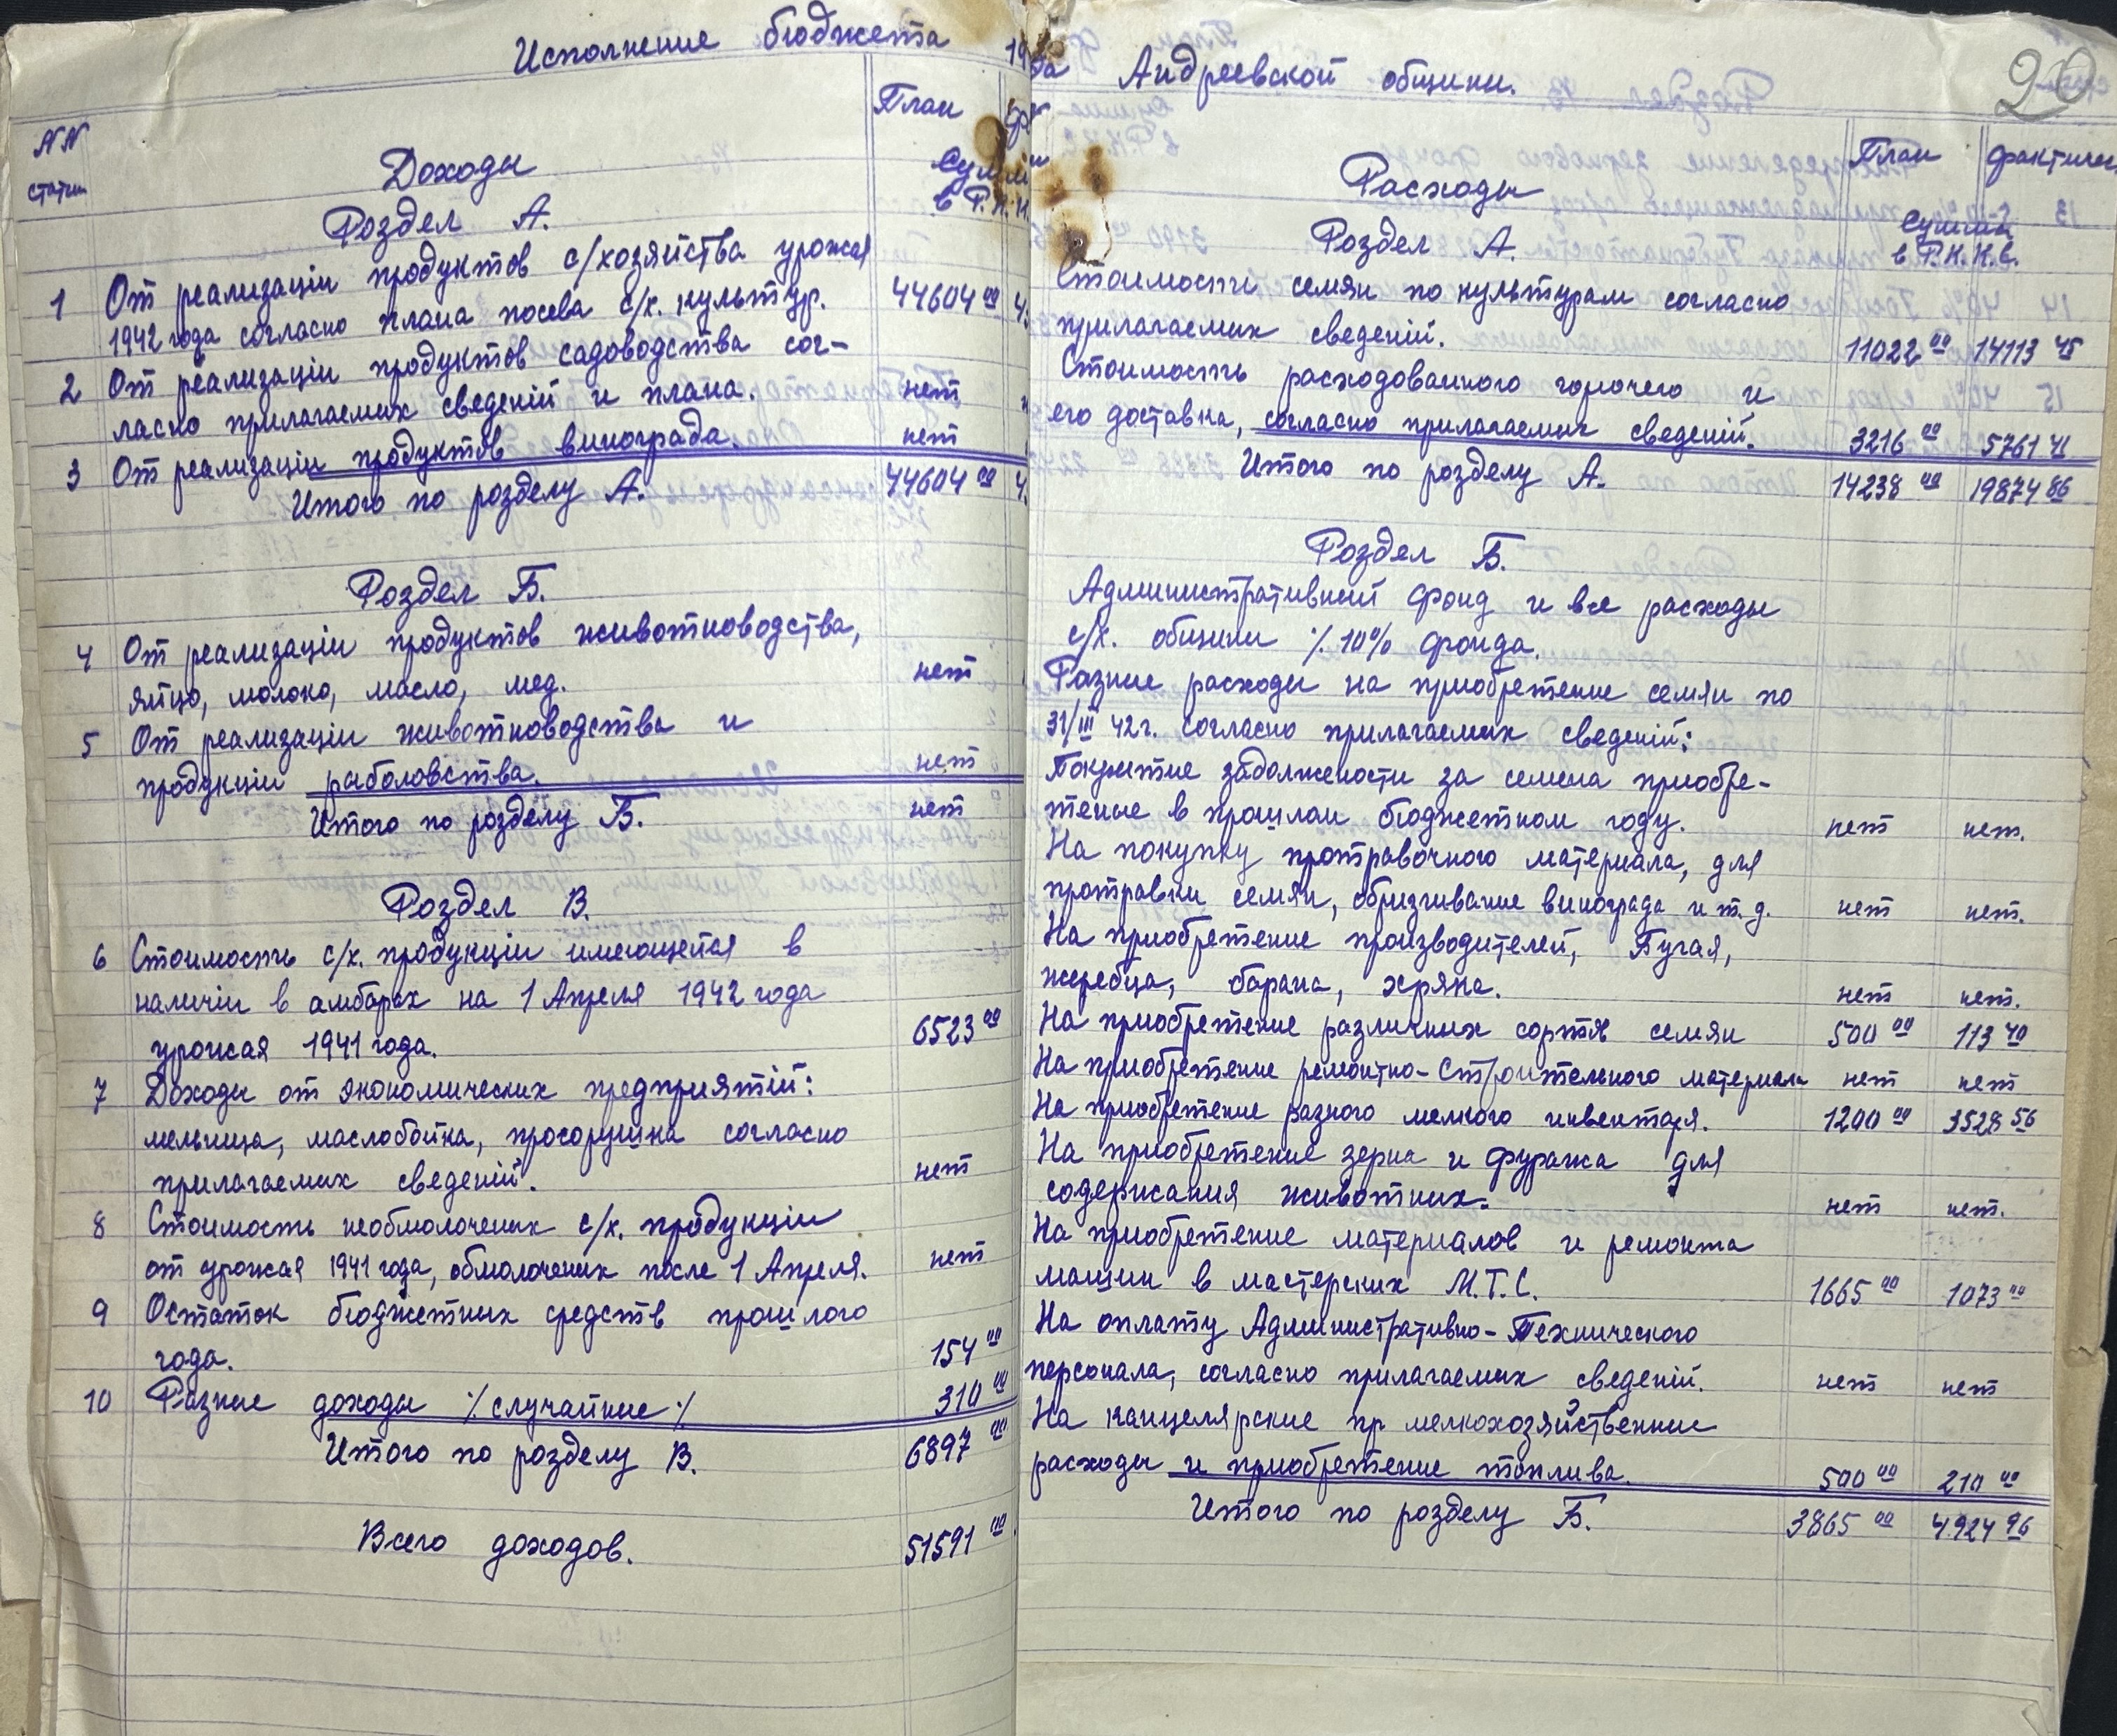 Исполнение бюджета 19
План
NN
статьи
Доходы
Сумма
в Р.К.К.
Роздел А.
1 От реализаціи продуктов с/хозяйства урожая
1942 года согласно плана посева с/х. культур. 44604 00
2 От реализаціи продуктов садоводства сог-
ласно прилагаемых сведеній и плана. нет
3 От реализаціи продуктов винограда. нет
Итого по розделу А. 44604 00
Роздел Б.
4 От реализаціи продуктов животноводства,
яйцо, молоко, масло, мед. нет
5 От реализаціи животноводства и
продукціи рыболовства. нет
Итого по розделу Б. нет
Роздел В.
6 Стоимость с/х. продукціи имеющейся в
наличіи в амбарах на 1 Апреля 1942 года
урожая 1941 года. 6523 00
7 Доходы от экономических предприятій:
мельница, маслобойка, просорушка согласно
прилагаемых сведеній. нет
8 Стоимость необмолоченых с/х. продукціи
от урожая 1941 года, обмолоченых после 1 Апреля. нет
9 Остаток бюджетных средств прошлого
года. 154 00
10 Разные доходы ٪случайные٪ 310 00
Итого по розделу В. 6897 00
Всего доходов. 51591 00
да Андреевской общины.
20
План фактичес
Расходы
Сумма
в Р.К.К.С.
Роздел А.
Стоимость семян по культурам согласно
прилагаемых сведеній. 11022 00 14113 45
Стоимость расходованного горючего и
его доставка, согласно прилагаемых сведеній. 3216 00 5761 41
Итого по розделу А. 14238 00 19874 86
Роздел Б.
Административный фонд и все расходы
с/х. общины ٪ 10% фонда.
Разные расходы на приобретение семян по
31/III 42 г. согласно прилагаемых сведеній:
Покрытие задолжености за семена приобре-
теные в прошлом бюджетном году. нет нет.
На покупку протравочного материала, для
протравы семян, обризгивание винограда и т. д. нет нет.
На приобретение производителей, Бугая,
жеребца, барана, хряка. нет нет.
На приобретение различных сортов семян 500 00 113 40
На приобретение ремонтно-строительного материала нет нет
На приобретение разного мелкого инвентаря. 1200 00 3528 56
На приобретение зерна и фуража для
содержания животных. нет нет.
На приобретение материалов и ремонта
машин в мастерских М.Т.С. 1665 00 1073 00
На оплату Административно-Технического
персонала, согласно прилагаемых сведеній. нет нет
На канцелярские пр мелкохозяйственные
расходы и приобретение топлива. 500 00 210 00
Итого по розделу Б. 3865 00 4924 96